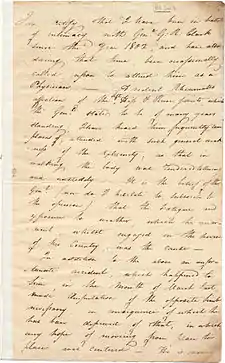 I certify that I have been in habits
of intimacy with Genl. G. R. Clark
since the Year 1802 and have also
during that time been occasionally
called upon to attend him as a
Physician — A violent Rheumatic
affection of the Hip & Knee joints which
the Genl. stated to be of many years
standing I have heard him frequently com-
plain of, attended with such general weak-
ness of the extremity, as that in
walking the body was tottered
and unsteady. It is the belief of the
Genl. (nor do I hesitate to subscribe to
the opinion) that the fatigue and
exposure to weather which he under-
went whilst engaged in the service
of his Country, was the cause —
In addition to the above an unfor-
tunate accident which happened to
him in the Month of March last
made Amputation of the opposite limb
necessary in consequence of which he
has been deprived of that, in which
any hope of moving from place to
place was centered — He is now